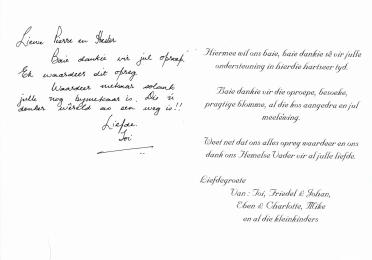 Liewe Pierre en Hester
Baie dankie vir jul oproep.
Ek waardeer dit opreg
Waardeer mekaar solank
julle nog bymekaar is. Dis 'n
donker wêreld as een weg is!!
Liefde.
Toi
Hiermee wil ons baie, baie dankie sê vir julle
ondersteuning in hierdie hartseer tyd.
Baie dankie vir die oproepe, besoeke,
pragtige blomme, al die kos aangedra en jul
meelewing.
Weet net dat ons alles opreg waardeer en ons
dank ons Hemelse Vader vir al julle liefde.
Liefdegroete
Van : Toi, Friedel & Johan,
Eben & Charlotte, Mike
en al die kleinkinders